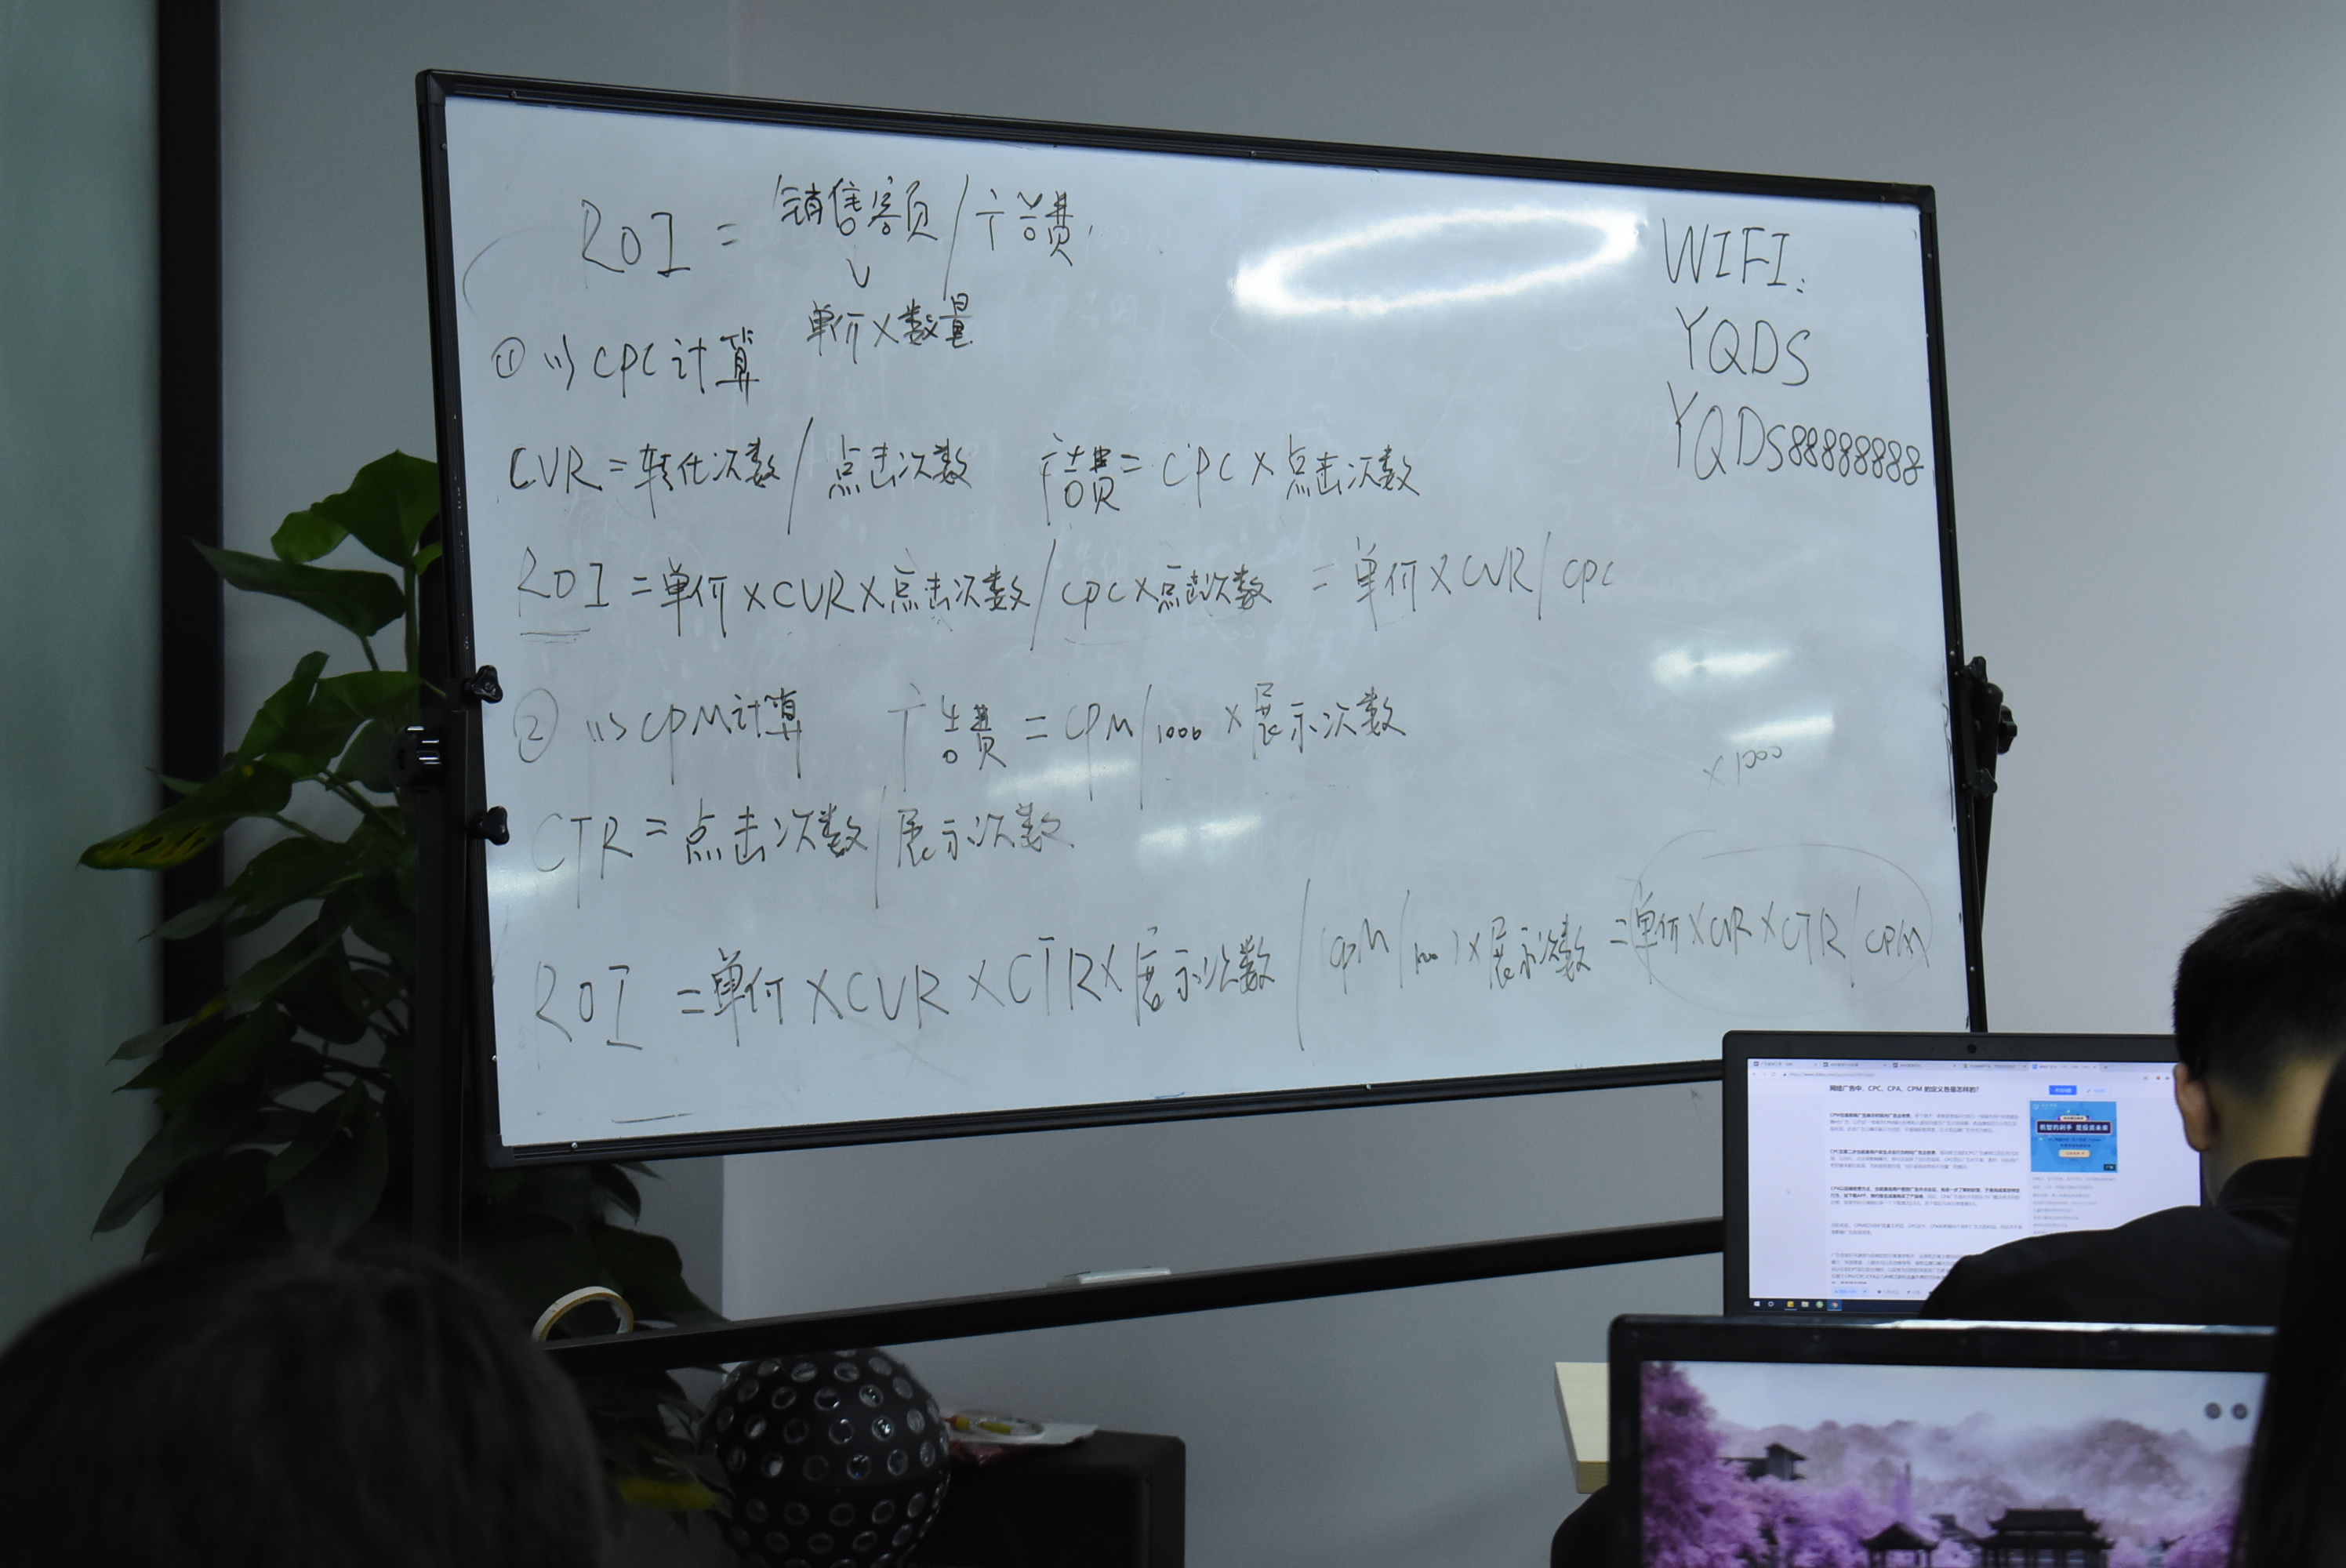 ROI = 销售额 / 广告费
↓
单价 × 数量
① 以CPC计算
CVR = 转化次数 / 点击次数 广告费 = CPC × 点击次数
ROI = 单价 × CVR × 点击次数 / CPC × 点击次数 = 单价 × CVR / CPC
② 以CPM计算 广告费 = CPM / 1000 × 展示次数
CTR = 点击次数 / 展示次数
×1000
ROI = 单价 × CVR × CTR × 展示次数 / (CPM / 1000) × 展示次数 = 单价 × CVR × CTR / CPM
WIFI:
YQDS
YQDS88888888
网络广告中，CPC、CPA、CPM 的定义各是怎样的？